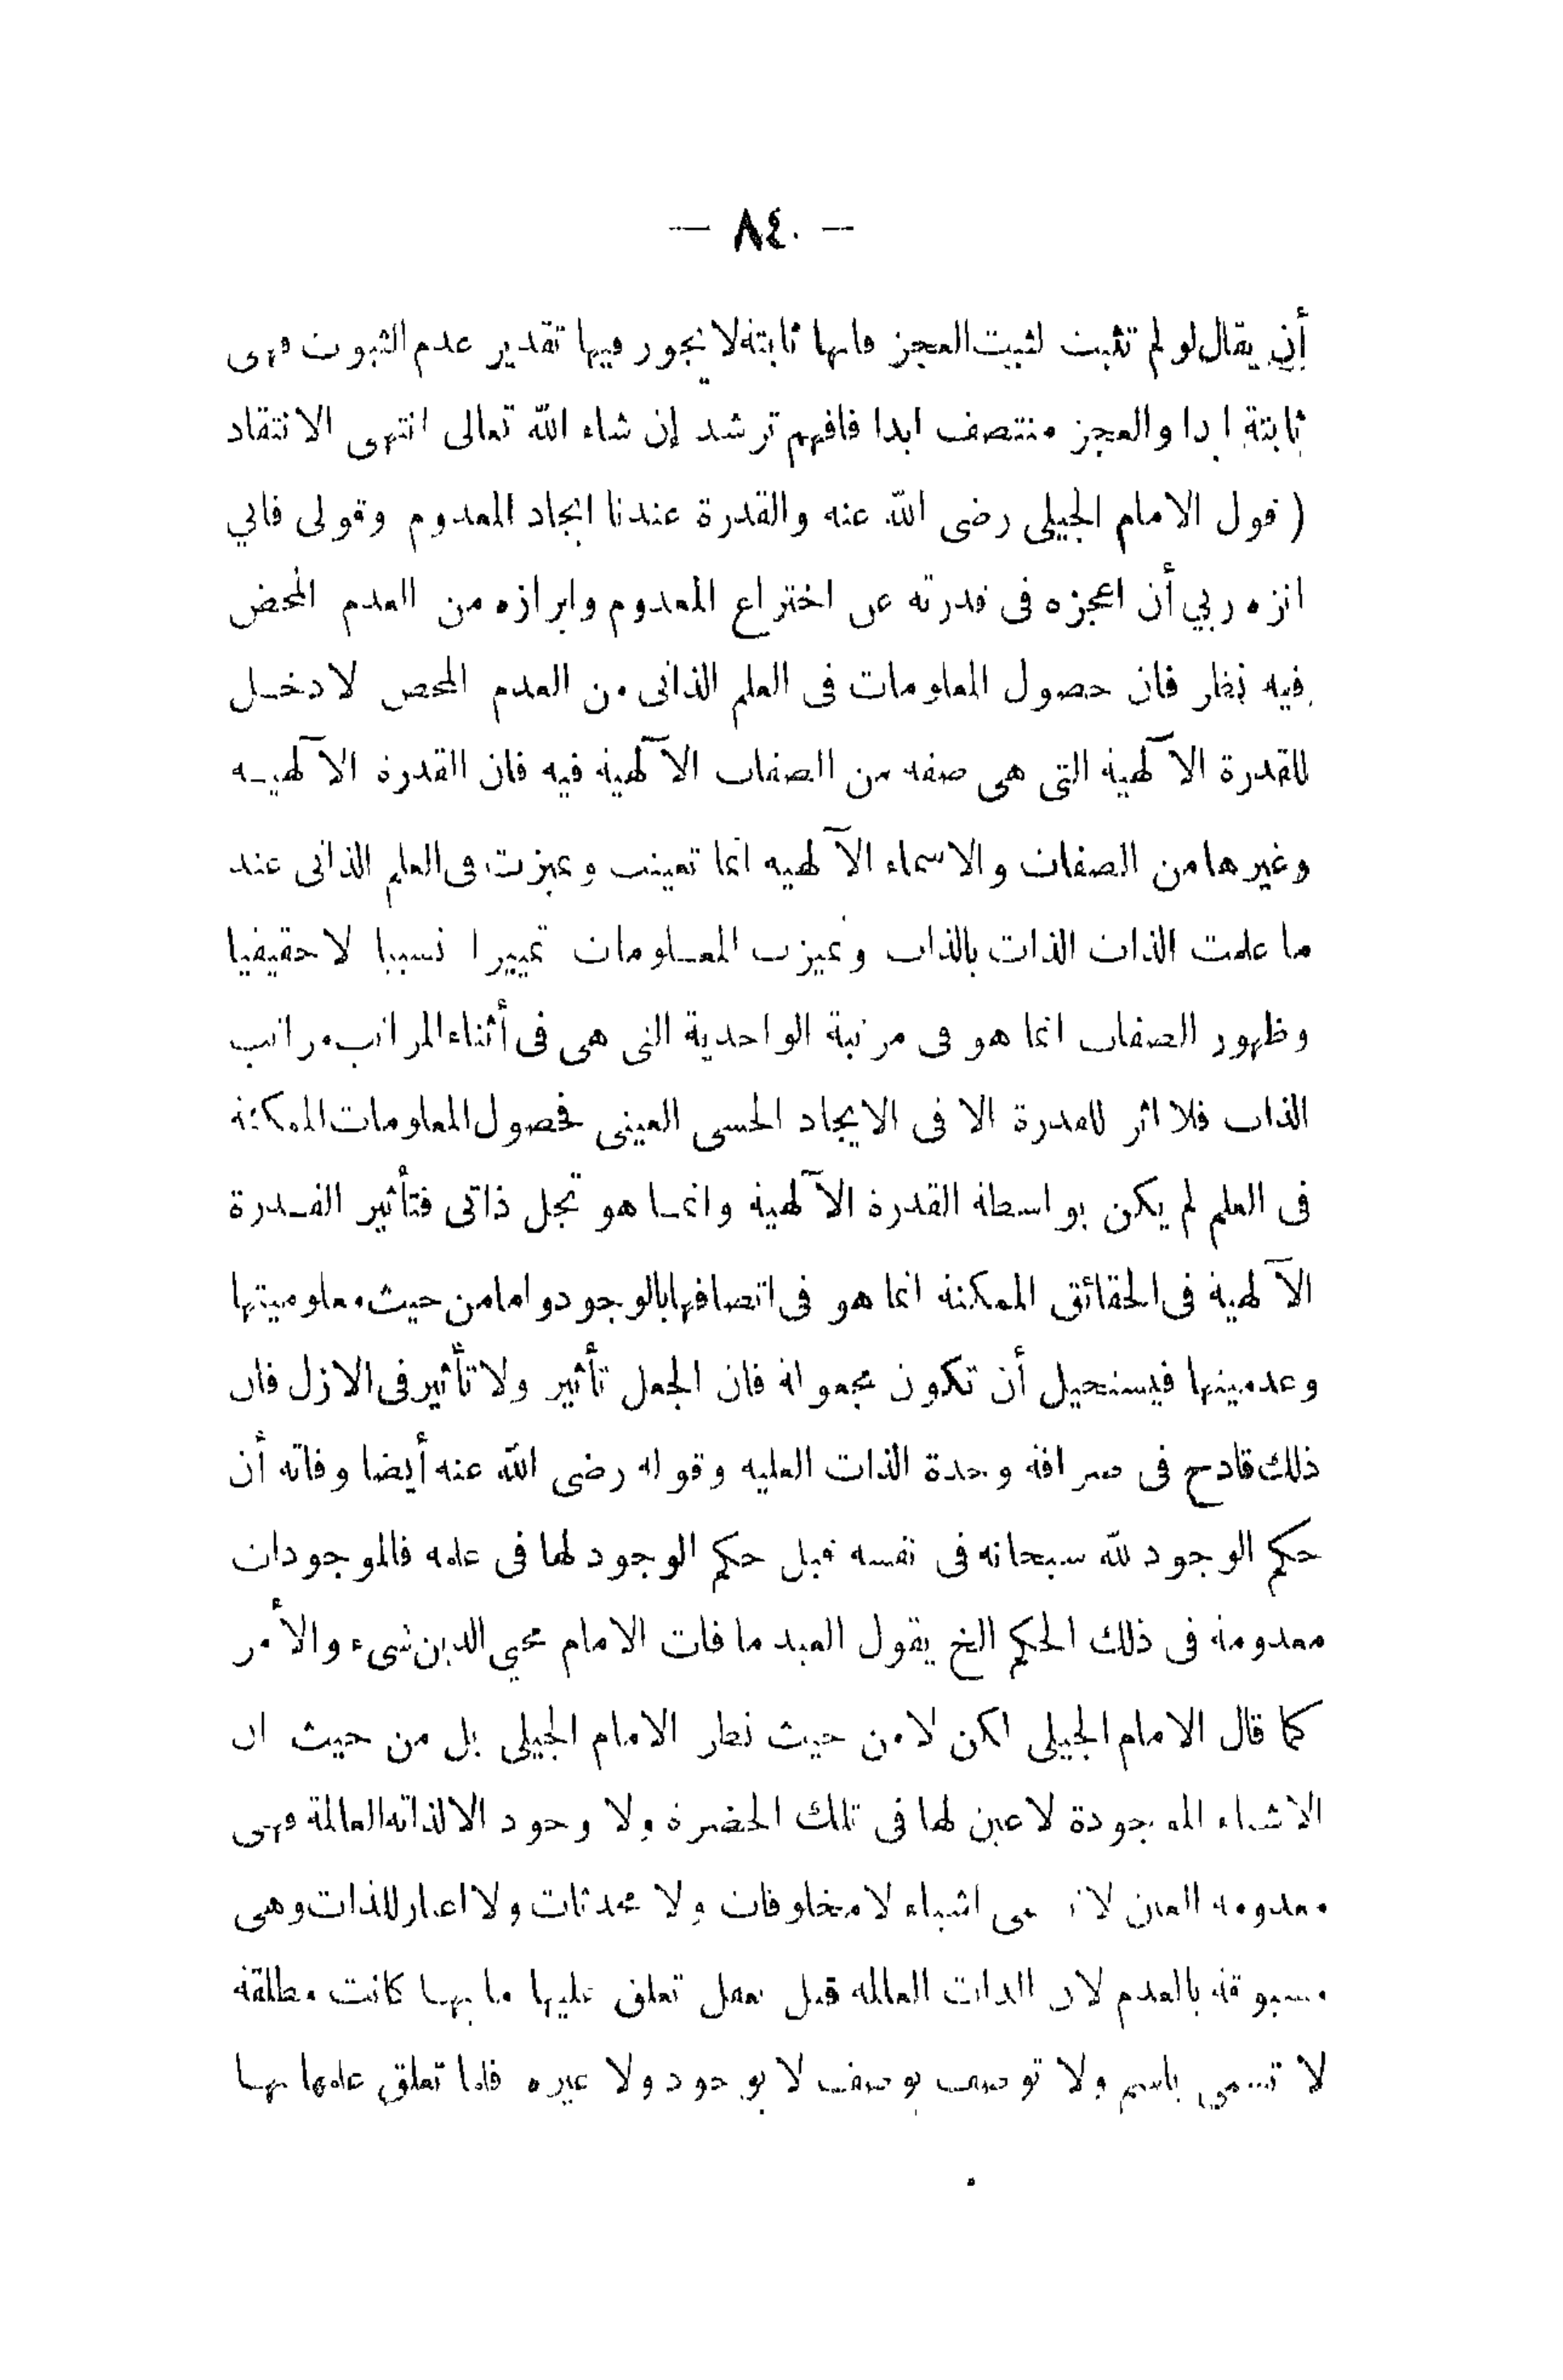 — ٨٤٠ —
أن يقال لو لم تثبت لثبت العجز فانها ثابتة لا يجوز فيها تقدير عدم الثبوت فهى
ثابتة ابدا والعجز منتصف ابدا فافهم ترشد إن شاء الله تعالى انتهى الانتقاد
( قول الامام الجيلى رضى الله عنه والقدرة عندنا ايجاد المعدوم وقولى فاني
انزه ربي أن اعجزه فى قدرته عن اختراع المعدوم وابرازه من العدم المحض
فيه نظر فان حصول المعلومات فى العلم الذاتى من العدم المحض لا دخل
للقدرة الآلهية التى هى صفة من الصفات الآلهية فيه فان القدرة الآلهيـة
وغيرها من الصفات والاسماء الآلهية انما تعينت وتميزت فى العلم الذاتى عند
ما علمت الذات الذات بالذات وتميزت المعلومات تمييزا نسبيا لا حقيقيا
وظهور الصفات انما هو فى مرتبة الواحدية التى هى فى أثناء المراتب مراتب
الذات فلا اثر للقدرة الا فى الايجاد الحسى العينى فحصول المعلومات الممكنة
فى العلم لم يكن بواسطة القدرة الآلهية وانمـا هو تجل ذاتى فتأثير القـدرة
الآلهية فى الحقائق الممكنة انما هو فى اتصافها بالوجود واما من حيث معلوميتها
وعدميتها فيستحيل أن تكون مجعولة فان الجعل تأثير ولا تأثير فى الازل فان
ذلك قادح فى صرافة وحدة الذات العلية وقوله رضى الله عنه أيضا وفاته أن
حكم الوجود لله سبحانه فى نفسه قبل حكم الوجود لها فى علمه فالموجودات
معدومة فى ذلك الحكم الخ يقول العبد ما فات الامام محيي الدين شىء والأمر
كما قال الامام الجيلى لكن لا من حيث نظر الامام الجيلى بل من حيث ان
الاشياء الموجودة لا عين لها فى تلك الحضرة ولا وجود الا لذاته العالمة فهى
معدومة العين لا هى اشياء لا مخلوقات ولا محدثات ولا اغيار للذات وهى
مسبوقة بالعدم لان الذات العالمة قبل تعقل تعلق علمها بها كانت مطلقة
لا تسمى باسم ولا توصف بوصف لا بوجود ولا غيره فلما تعلق علمها بهـا